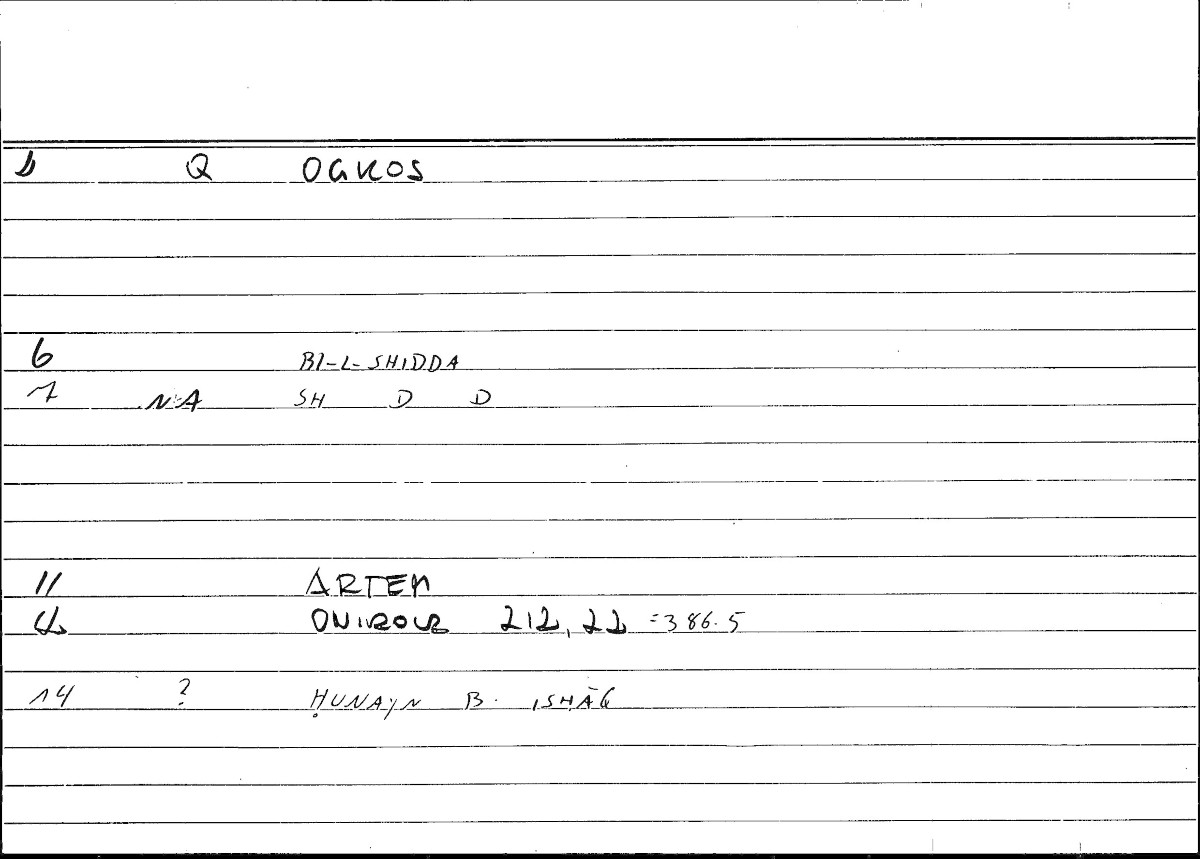 Q OGKOS
6 BI-L-SHIDDA
7 NA SH D D
11 ARTEM
ONIROCR 212, 22 =386.5
14 ? ḤUNAYN B. ISḤĀQ